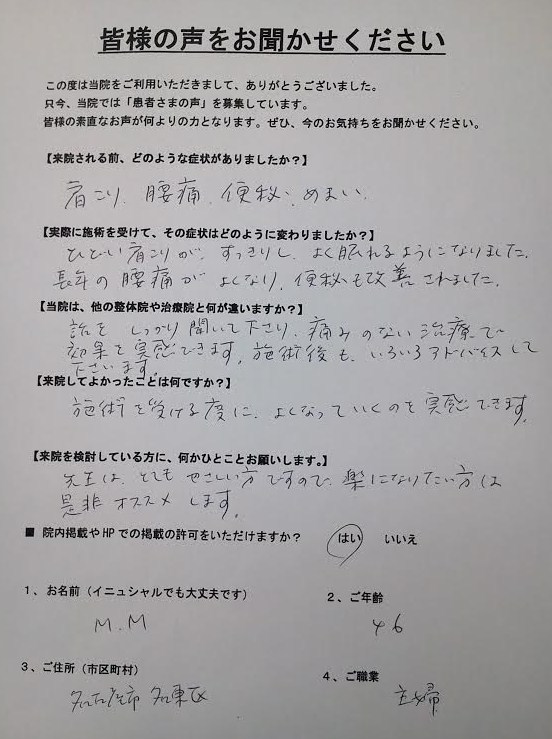 皆様の声をお聞かせください
この度は当院をご利用いただきまして、ありがとうございました。
只今、当院では「患者さまの声」を募集しています。
皆様の素直なお声が何よりの力となります。ぜひ、今のお気持ちをお聞かせください。
【来院される前、どのような症状がありましたか？】
肩こり、腰痛、便秘、めまい、
【実際に施術を受けて、その症状はどのように変わりましたか？】
ひどい肩こりが、すっきりし、よく眠れるようになりました。
長年の腰痛がよくなり、便秘も改善されました。
【当院は、他の整体院や治療院と何が違いますか？】
話をしっかり聞いて下さり、痛みのない治療で
効果を実感できます。施術後も、いろいろアドバイスして
下さいます。
【来院してよかったことは何ですか？】
施術を受ける度に、よくなっていくのを実感できます。
【来院を検討している方に、何かひとことお願いします。】
先生は、とてもやさしい方ですので、楽になりたい方は
是非オススメします。
■ 院内掲載やHPでの掲載の許可をいただけますか？ はい いいえ
1、お名前（イニュシャルでも大丈夫です） 2、ご年齢
M.M 46
3、ご住所（市区町村） 4、ご職業
名古屋市 名東区 主婦